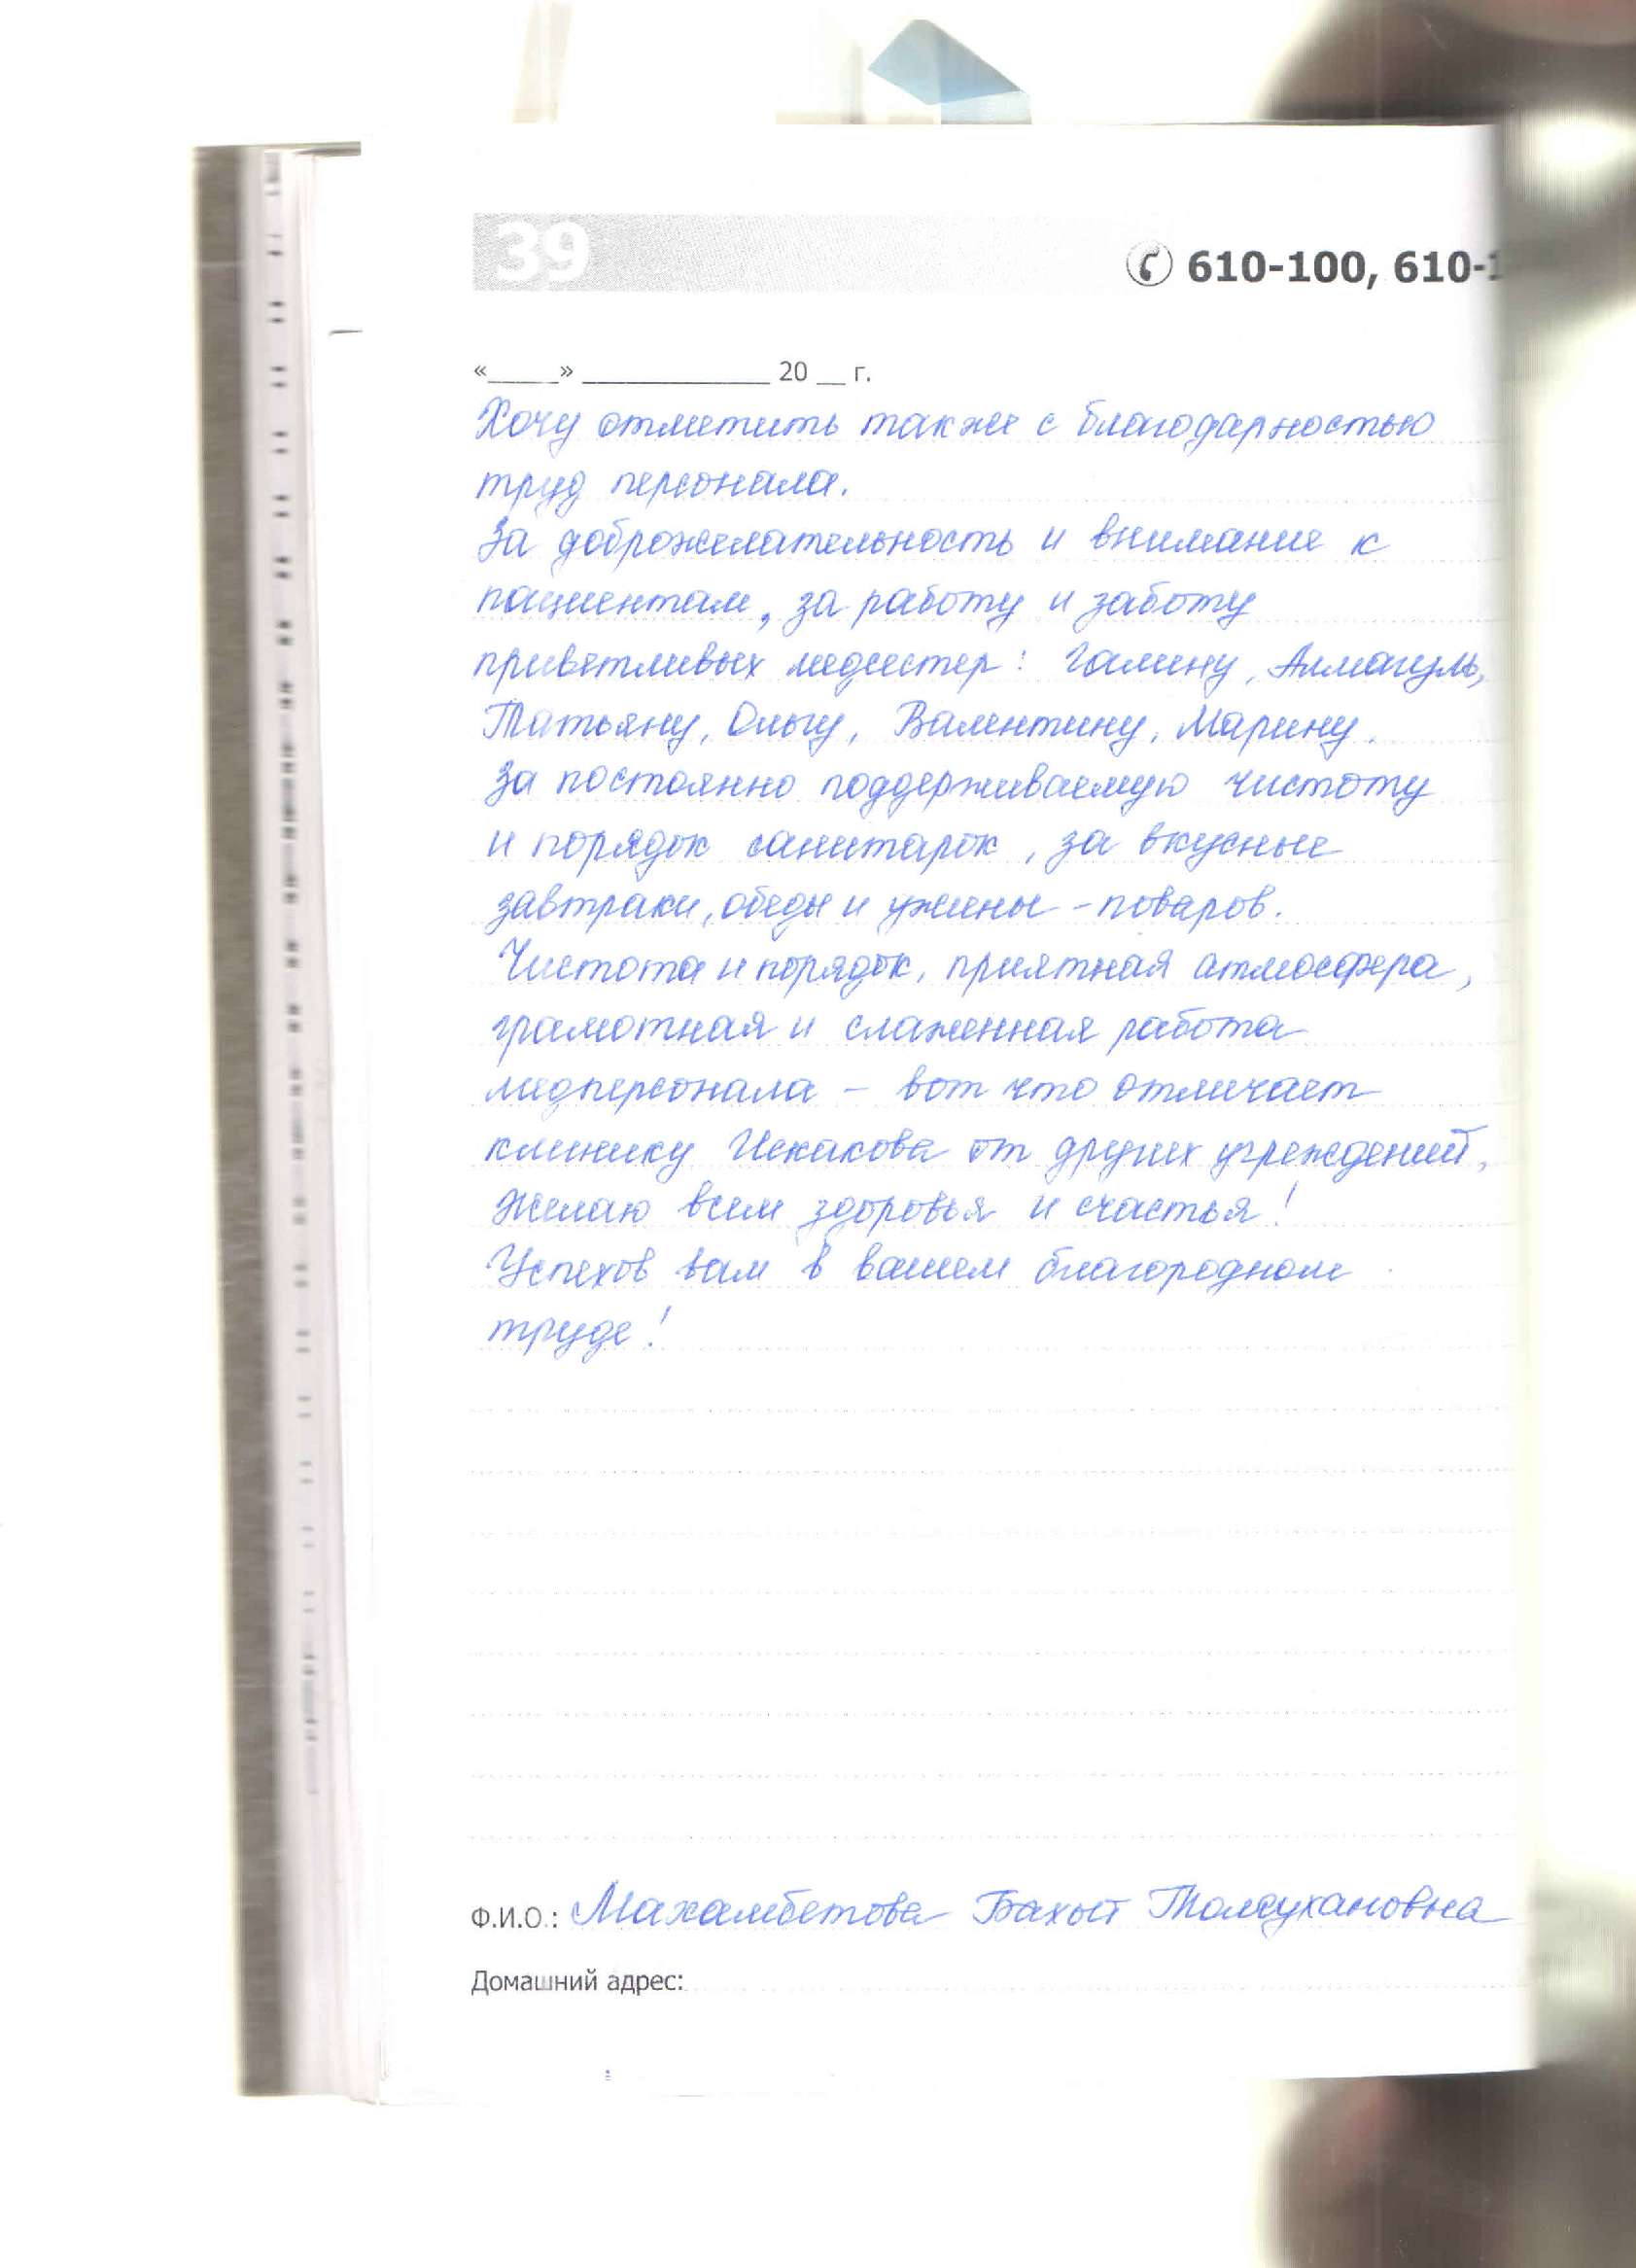 39
610-100, 610-1
«_____» _____________ 20 __ г.
Хочу отметить также с благодарностью
труд персонала.
За доброжелательность и внимание к
пациентам, за работу и заботу
приветливых медсестер: Галину, Алмагуль,
Татьяну, Ольгу, Валентину, Марину.
За постоянно поддерживаемую чистоту
и порядок санитарок, за вкусные
завтраки, обеды и ужины - поваров.
Чистота и порядок, приятная атмосфера,
грамотная и слаженная работа
медперсонала – вот что отличает
клинику Искакова от других учреждений.
Желаю всем здоровья и счастья!
Успехов вам в вашем благородном
труде!
Ф.И.О.: Махамбетова Бахыт
Домашний адрес: